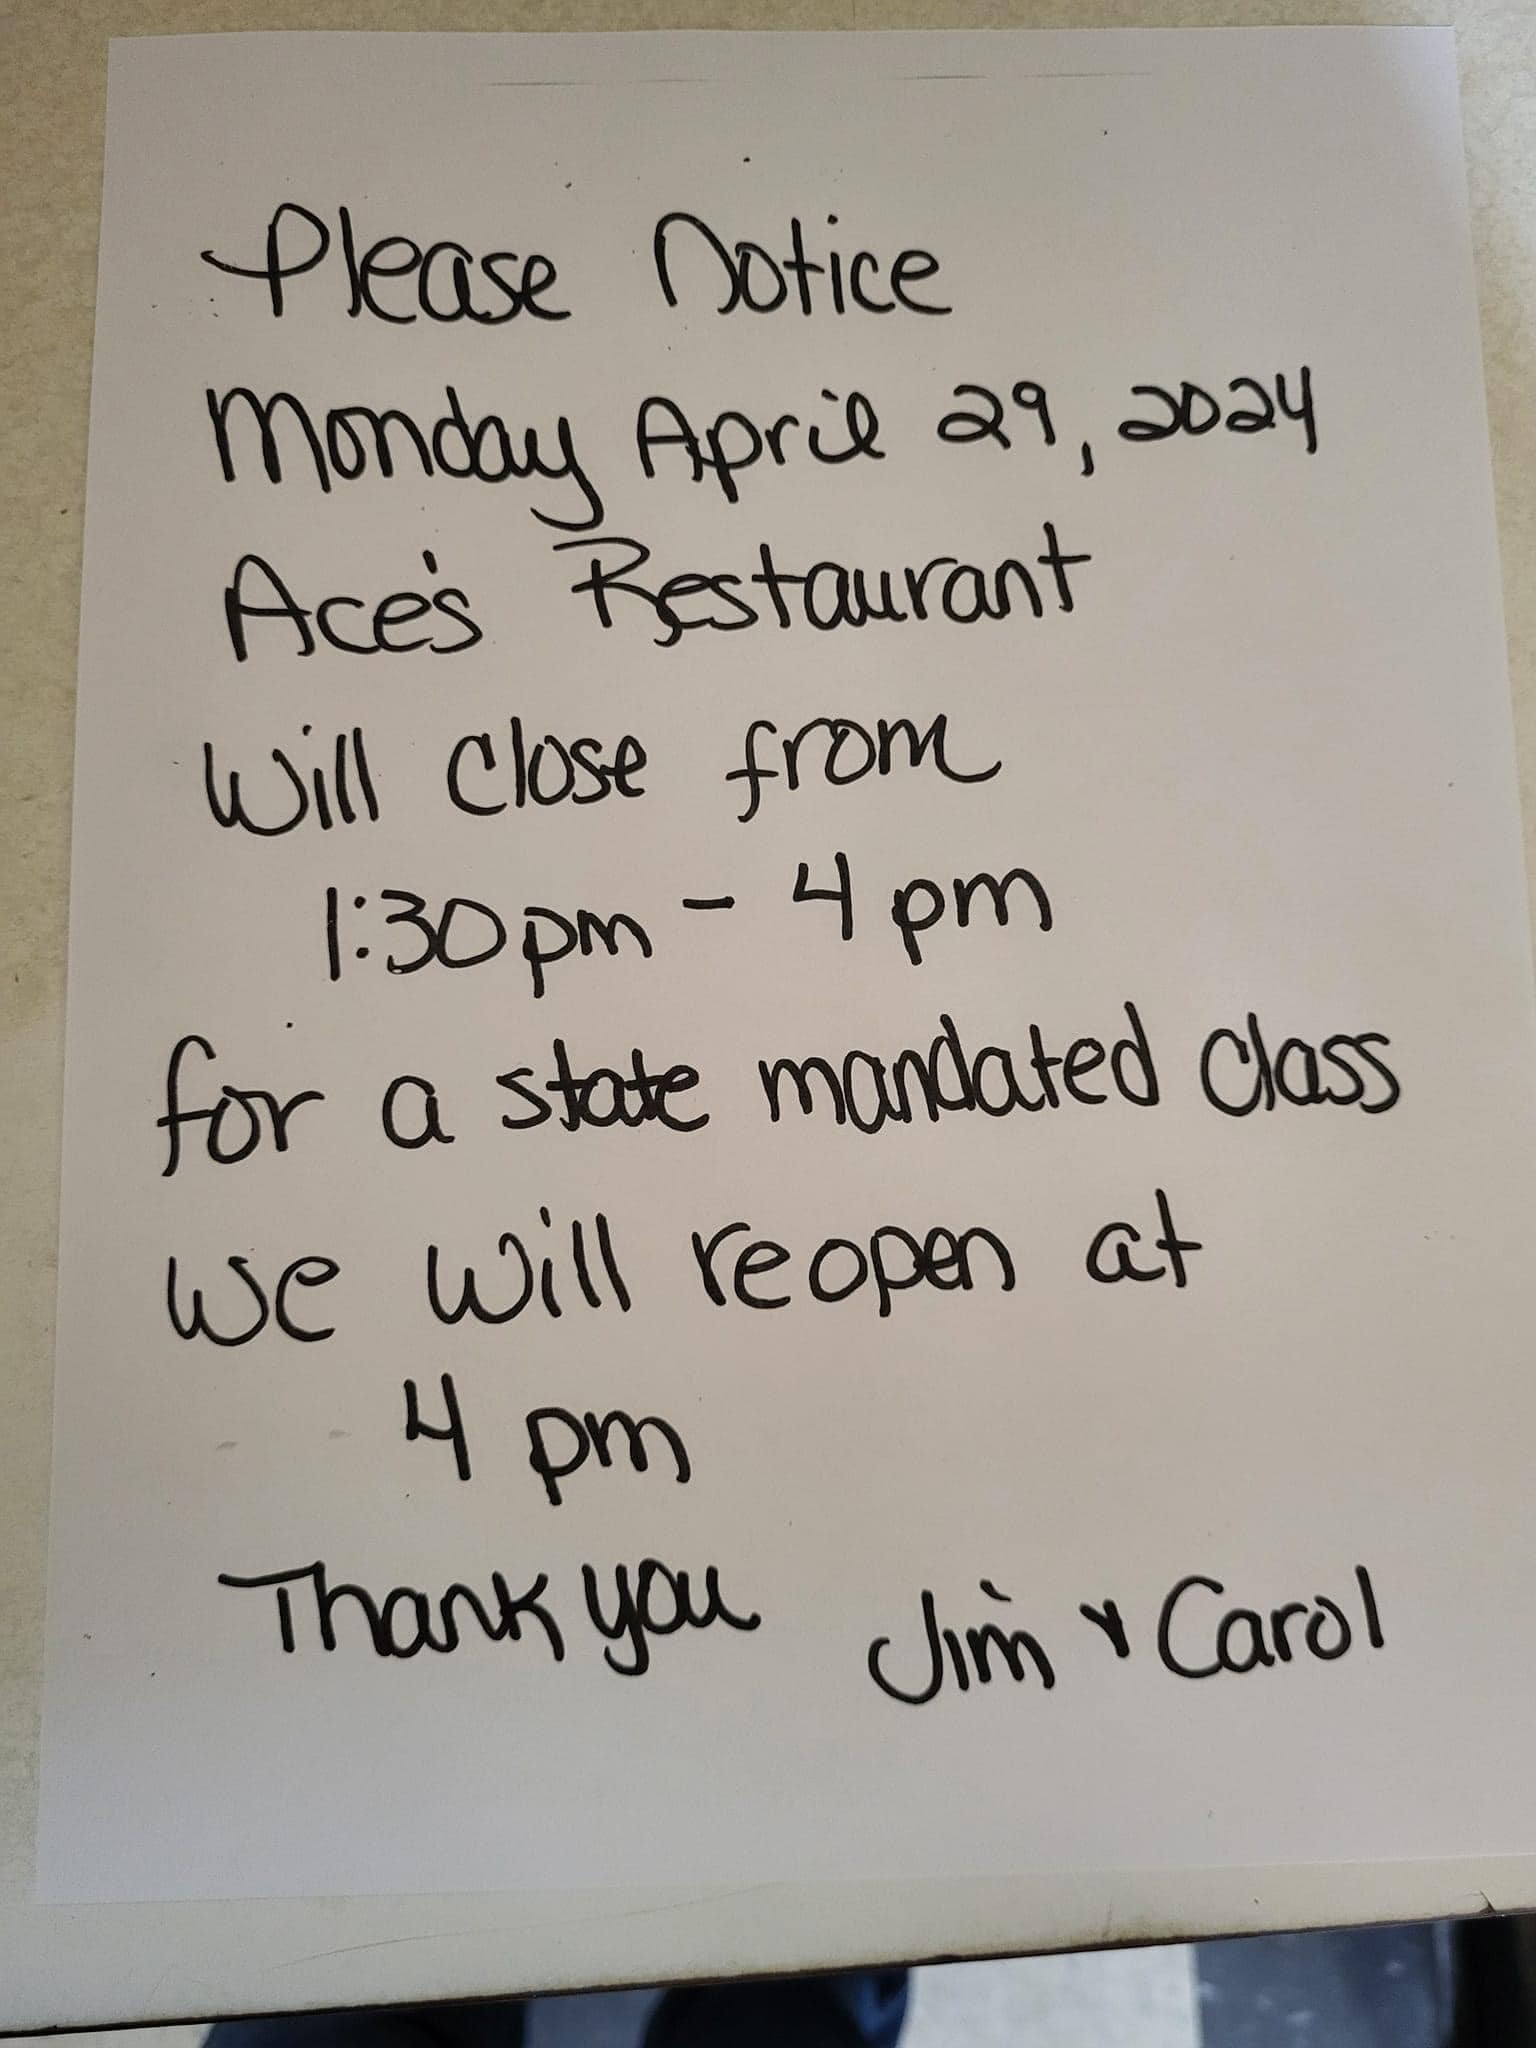 Please Notice
Monday April 29, 2024
Ace's Restaurant
Will close from
1:30pm - 4 pm
for a state mandated class
we will reopen at
4 pm
Thank you Jim & Carol